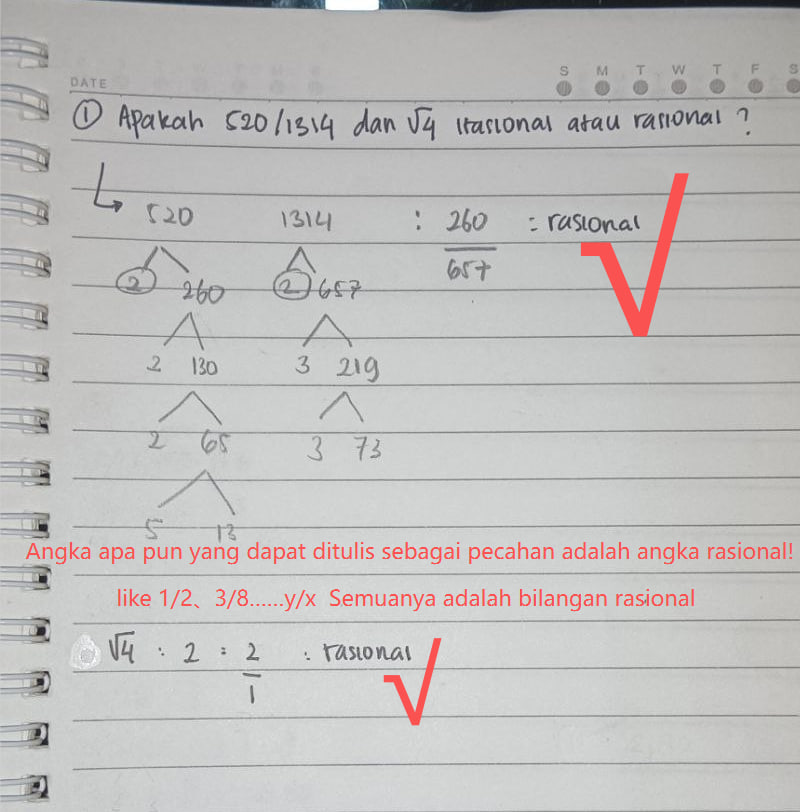 DATE
S M T W T F S
① Apakah 520/1314 dan √4 irasional atau rasional ?
520 1314 : 260/657 = rasional
2 260 2 657
2 130 3 219
2 65 3 73
5 13
Angka apa pun yang dapat ditulis sebagai pecahan adalah angka rasional!
like 1/2、3/8......y/x Semuanya adalah bilangan rasional
√4 : 2 = 2/1 : rasional